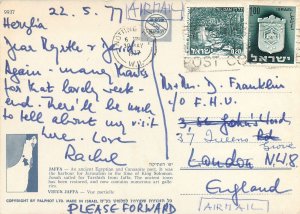 9937
Herzlia 22.5.77
AIRMAIL
Dear Dyske &
Again - many thanks
for that lovely week-
end. There'll be much
to tell about my visit
here. Love
Rachel
JAFFA - An ancient Egyptian and Canaanite port, it was
the harbour for Jerusalem in the time of King Solomon.
Jonah sailed for Tarshish from Jaffa. The ancient town
has been restored, and now contains numerous art galle-
ries.
VIEUX JAFFA - Vue partielle
COPYRIGHT BY PALPHOT LTD. MADE IN ISRAEL
PLEASE FORWARD
0.20
1.00
ישראל
ISRAEL
POST CO
Mr & Mrs D. Franklin
c/o F.H.U.
St. John's Wood
37 Queens Grove
London NW8
England
AIRMAIL